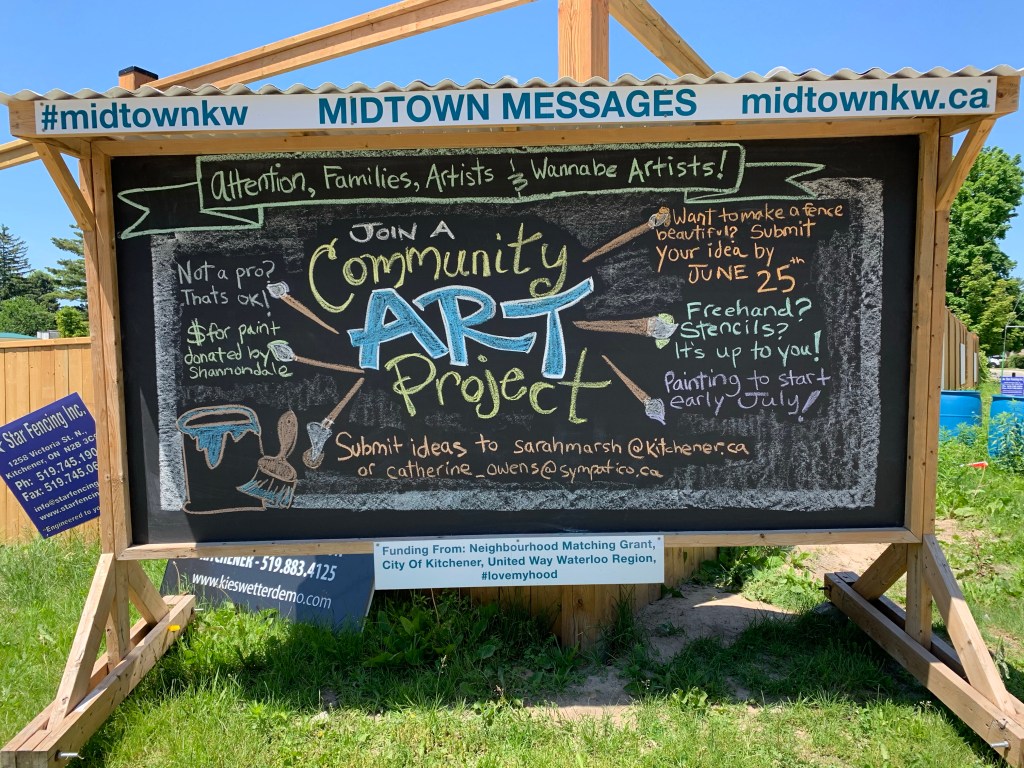 #midtownkw
MIDTOWN MESSAGES
midtownkw.ca
Attention, Families, Artists & Wannabe Artists!
JOIN A
Community
ART
Project
Not a pro?
Thats OK!
$ for paint
donated by
Shannondale
Want to make a fence
beautiful? Submit
your idea by
JUNE 25th
Freehand?
Stencils?
It's up to you!
Painting to start
early July!
Submit ideas to sarahmarsh@kitchener.ca
or catherine_owens@sympatico.ca
Star Fencing Inc.
1258 Victoria St. N.,
Kitchener, ON N2B 3C
Ph: 519.745.190
Fax: 519.745.06
info@starfencing
www.starfencing
"Engineered to
KITCHENER - 519.883.4125
www.kieswetterdemo.com
Funding From: Neighbourhood Matching Grant,
City Of Kitchener, United Way Waterloo Region,
#lovemyhood